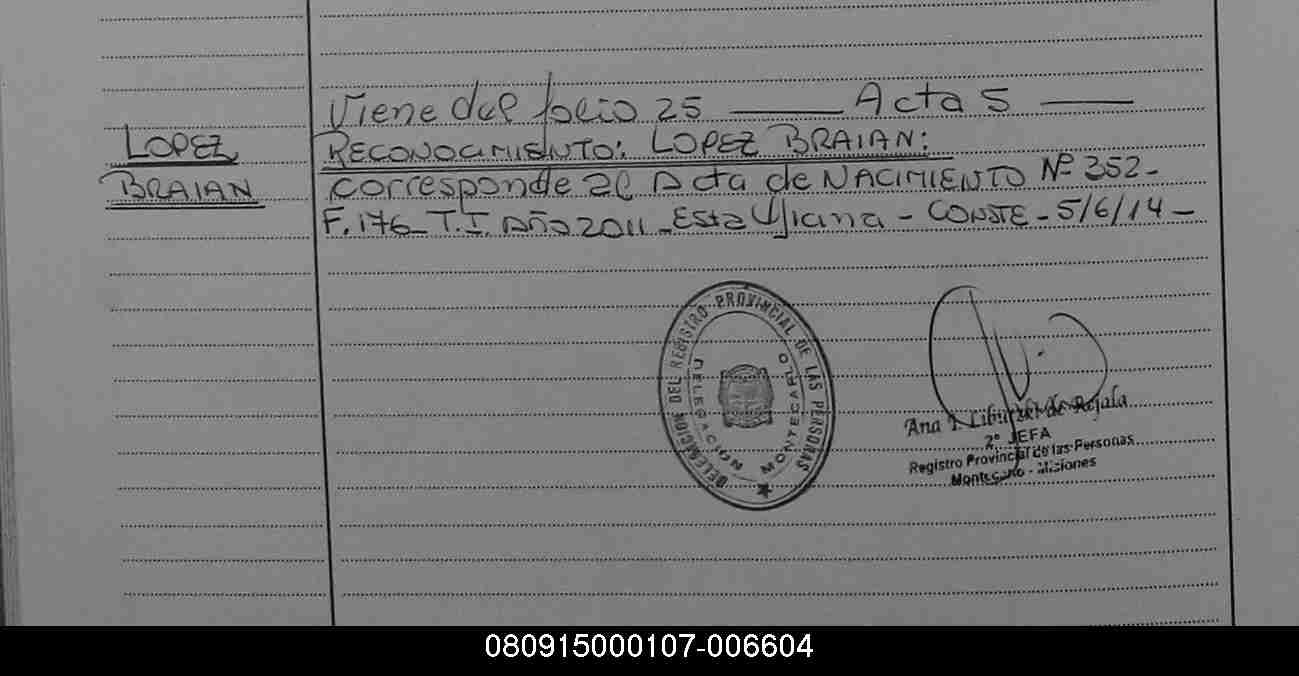 Viene del folio 25 ——— Acta 5 ———
LOPEZ
BRAIAN
RECONOCIMIENTO: LOPEZ BRAIAN:
corresponde al Acta de NACIMIENTO Nº 352-
F. 176- T.I. Año 2011 - Esta - CONSTE - 5/6/14 -
DELEGACION DEL REGISTRO PROVINCIAL DE LAS PERSONAS
DELEGACION MONTECARLO
Ana de Rejala
2º JEFA
Registro Provincial de las Personas
Montecarlo - Misiones
080915000107-006604